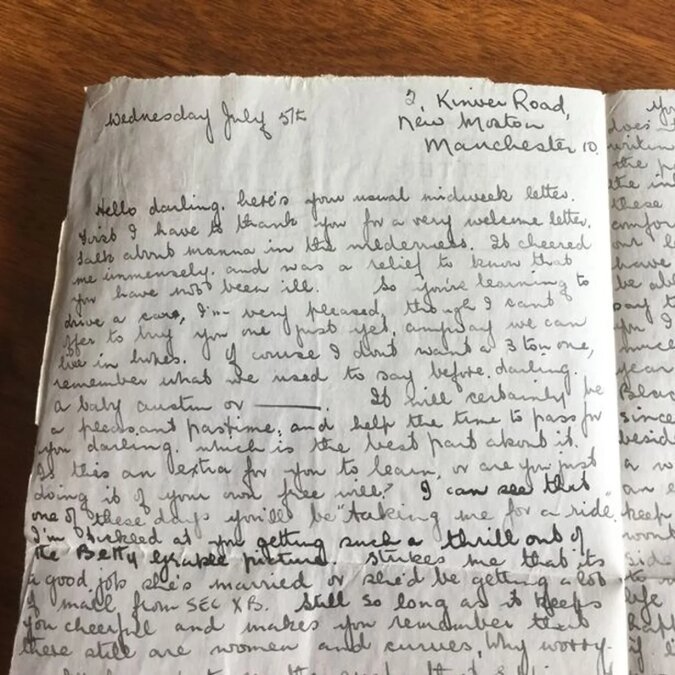 Wednesday July 5th
2, Kinver Road,
New Moston
Manchester 10.
Hello darling, here's your usual midweek letter.
First I have to thank you for a very welcome letter.
Talk about manna in the wilderness. It cheered
me immensely, and was a relief to know that
you have not been ill. So you're learning to
drive a car, I'm very pleased, though I can't
offer to buy you one just yet, anyway we can
live in hopes. Of course I don't want a 3 ton one,
remember what we used to say before, darling.
a baby austin or ———. It will certainly be
a pleasant pastime, and help the time to pass for
you darling, which is the best part about it.
Is this an extra for you to learn, or are you just
doing it of your own free will? I can see that
one of these days you'll be "taking me for a ride"
I'm tickled at you getting such a thrill out of
the Betty Grable picture. Strikes me that its
a good job she's married or she'd be getting a lot
of mail from SEC XB. Still so long as it keeps
you cheerful and makes you remember that
there still are women and curves, Why worry.
does
writin
the p
the in
these
comfor
our l
have
be abl
say t
you I
since
year
Blac
since
besid
a w
an e
keep
wont
side
life
happ
if i